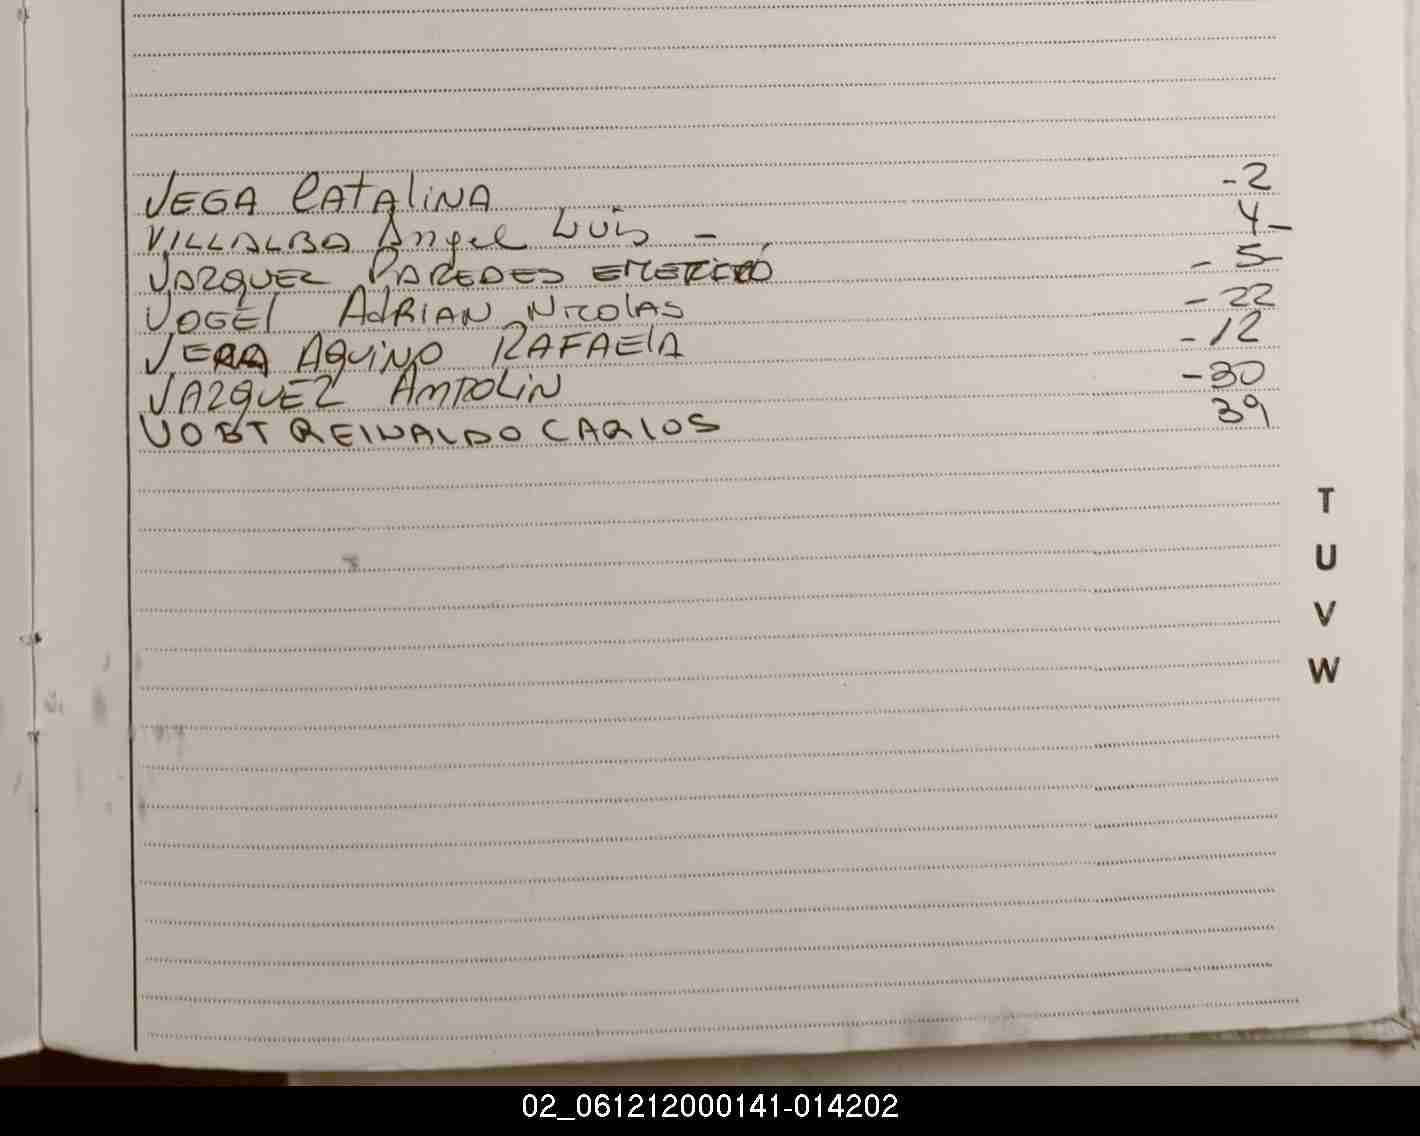 VEGA CATALINA -2
VILLALBA Angel Luis - 4-
VAZQUEZ PAREDES - 5-
VOGEL ADRIAN NICOLAS - 22
VERA AQUINO RAFAELA - 12
VAZQUEZ ANTOLIN - 30
VOBT REINALDO CARLOS 39
T
U
V
W
02_061212000141-014202